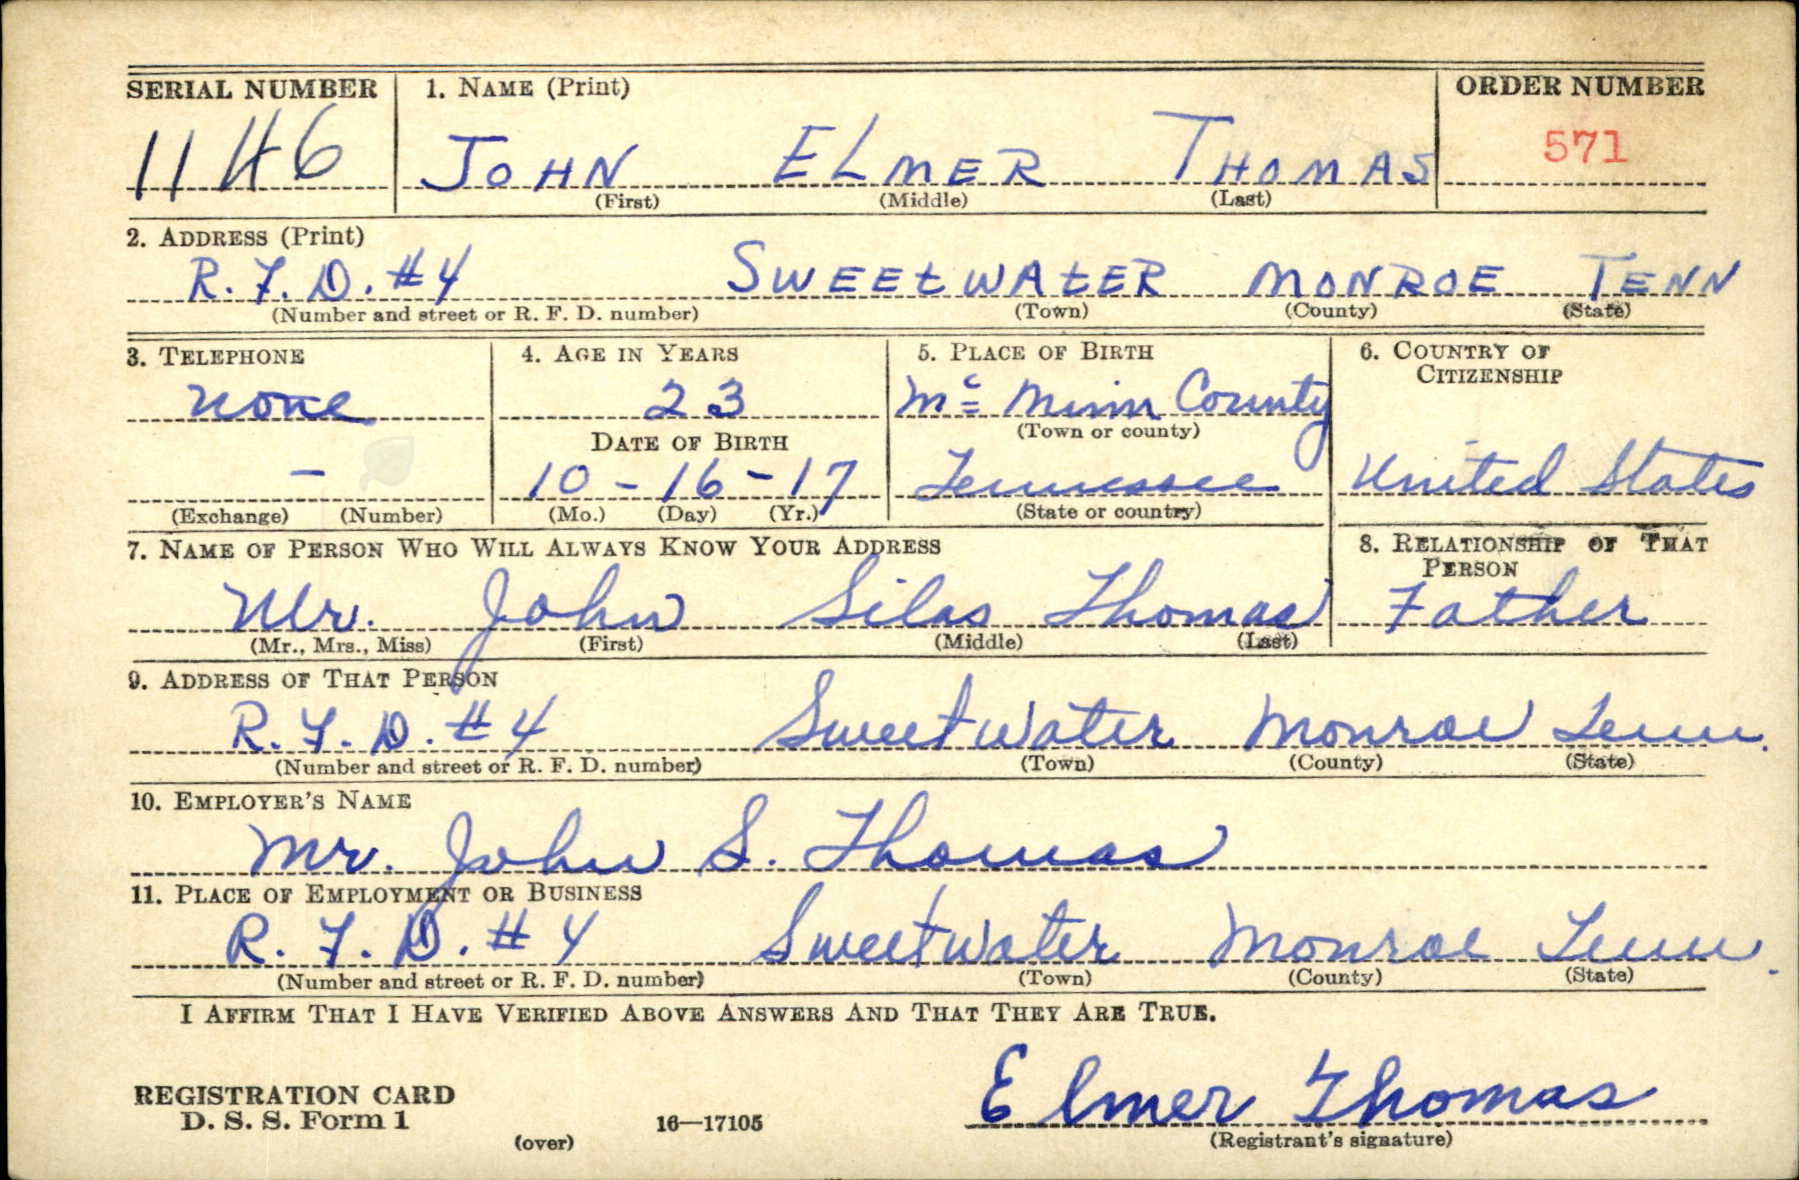 SERIAL NUMBER 1. NAME (Print) ORDER NUMBER
1146 JOHN ELMER THOMAS 571
(First) (Middle) (Last)
2. ADDRESS (Print)
R.F.D. #4 SWEEtWAtER MONROE TENN
(Number and street or R. F. D. number) (Town) (County) (State)
3. TELEPHONE 4. AGE IN YEARS 5. PLACE OF BIRTH 6. COUNTRY OF
CITIZENSHIP
none 23 Mc Minn County
DATE OF BIRTH (Town or county)
– 10-16-17 Tennessee United States
(Exchange) (Number) (Mo.) (Day) (Yr.) (State or country)
7. NAME OF PERSON WHO WILL ALWAYS KNOW YOUR ADDRESS 8. RELATIONSHIP OF THAT
PERSON
Mr. John Silas Thomas Father
(Mr., Mrs., Miss) (First) (Middle) (Last)
9. ADDRESS OF THAT PERSON
R.F.D. #4 Sweetwater Monroe Tenn.
(Number and street or R. F. D. number) (Town) (County) (State)
10. EMPLOYER'S NAME
Mr. John S. Thomas
11. PLACE OF EMPLOYMENT OR BUSINESS
R.F.D. #4 Sweetwater Monroe Tenn.
(Number and street or R. F. D. number) (Town) (County) (State)
I AFFIRM THAT I HAVE VERIFIED ABOVE ANSWERS AND THAT THEY ARE TRUE.
Elmer Thomas
REGISTRATION CARD
D. S. S. Form 1 16—17105
(over) (Registrant's signature)